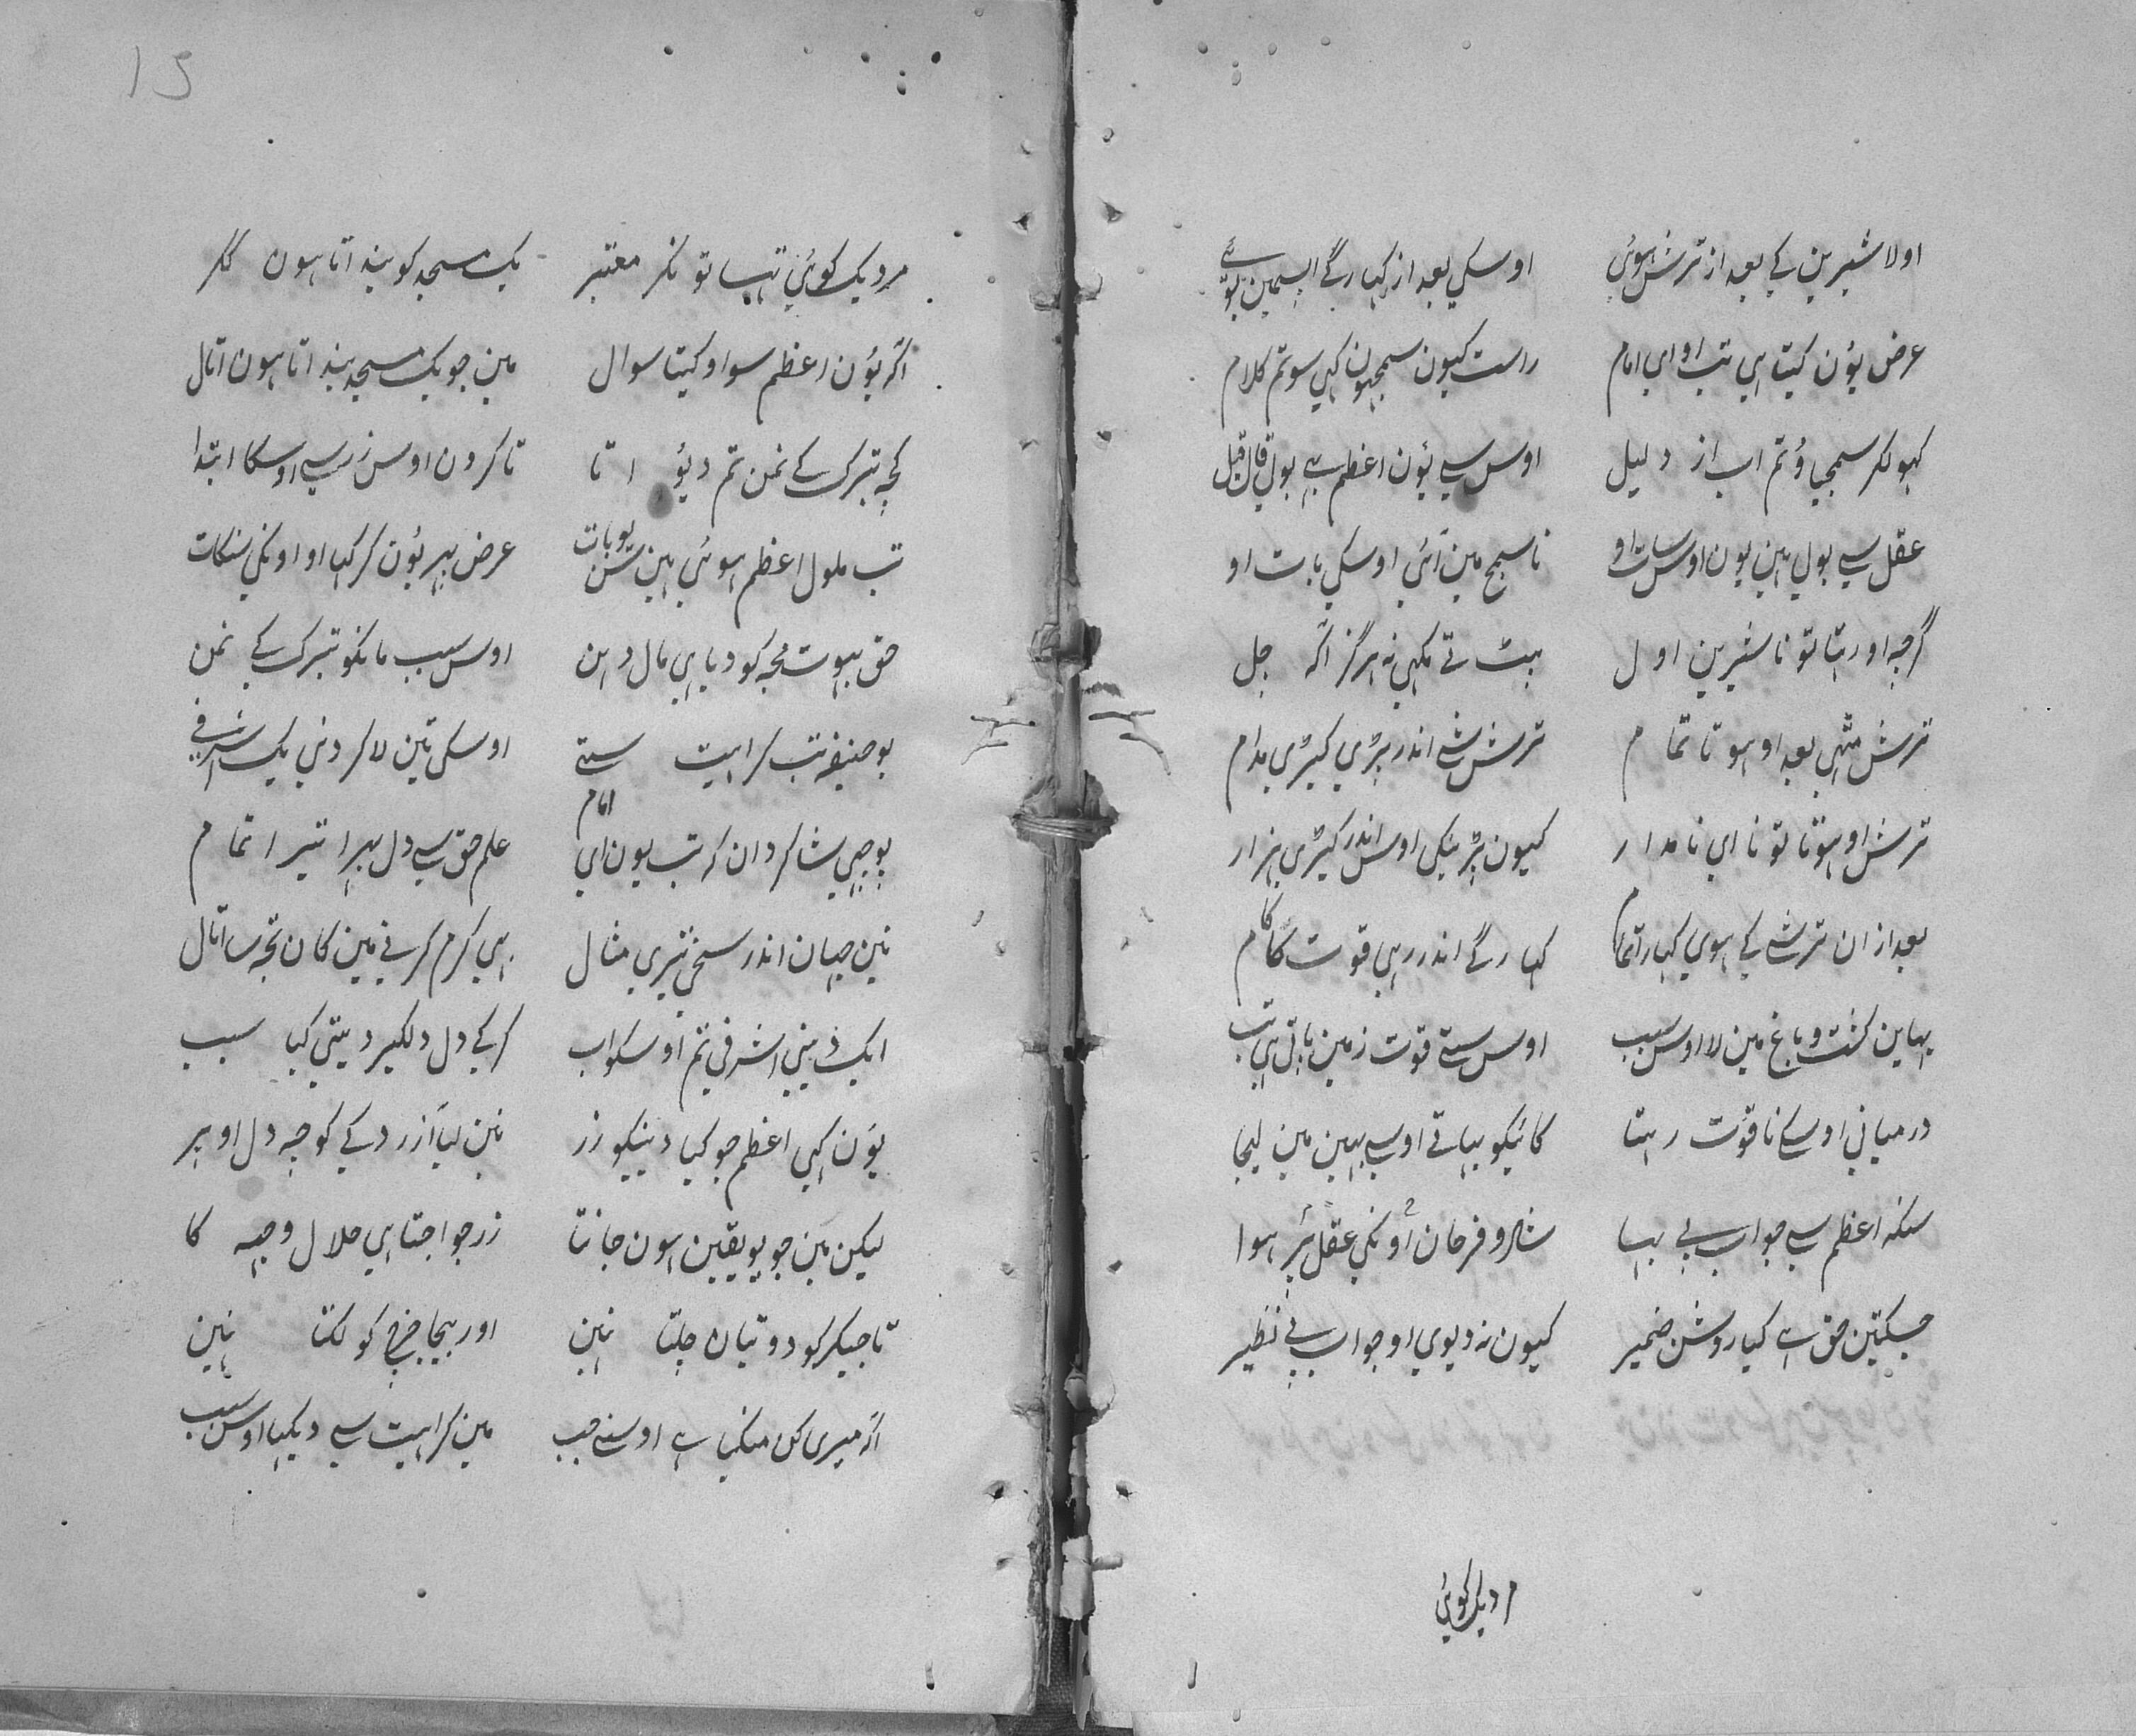 اولا شیرین کے بعد از ترش ہوئی اوسکی بعد از کہار گے اسمین
عرض یؤن کیتا ہی تب او ای امام راست کیون سمجہون کہی سو تم کلام
کہولکر سمجہاؤ تم اب از دلیل اوس سے یؤن اعظم ہے بولی قال قیل
عقل سے بولی ہین یون اوس سات او نا سمج مین آئی اوسکی بات او
گرچہ او رہتا تو نا شیرین اول نہ ہرگز اگہ جل
ترش بعد او ہوتا تمام ترش شے اندر پڑی کیڑی مدام
ترش او ہوتا تو نا ای نامدار کیون اوس اندر کیڑی ہزار
بعد ازان ترشے کے ہوی کہار تمام کہار گے اندر رہی قوت کا کام
کشت و باغ مین لا اوس سبب اوس ستے قوت زمین پاتی ہی تب
درمیانی اوسکے نا قوت رہتا اوسے مین لیجا
سنکہ اعظم سے جواب بے بہا شاد و فرحان اونکی عقل پر ہوا
جسکتین حق ہے کیا روشن ضمیر کیون نہ دیوی او جواب بے نظیر
مرد یک کوئی
15
مرد یک کوئی تہا تونکر معتبر یک مسجد کو بندہاتا ہون مگر
اکہ یؤن اعظم سو او کیتا سوال مین جو یک مسجد بندہاتا ہون اتال
کچہ تبرک کے نمن تم دیؤ اتا تا کرون اوس زر سے اوسکا ابتدا
تب ملول اعظم ہوئی ہین سن یو بات عرض پہر یؤن کر کہا او اونکی سنگات
حق بہوت مجہ کو دیا ہی مال دہن اوس سبب مانکو تبرک کے نمن
بوحنیفہ تب کراہیت ستے اوسکی تین لا کر دئی یک اشرفی
پوچہی شاکردان کہ تب یون ای امام علم حق سے دل بہرا تیرا تمام
نین جہان اندر سخی تیری مثال ہی کرم کرنے مین کان تجہ سا اتال
ایک دینی اشرفی تم اوسکو اب کر کے دل دلکیر دیتی کیا سبب
یؤن کہی اعظم جو کیا دینیکو زر نین لیا آزردکے کوچہ دل اوپر
لیکن مین جو یو یقین ہون جانتا زر جو اچتا ہی حلال وجہہ کا
تا جیکر کو دوتیان چلتا نہین اور بیجا خرچ کو لکتا نہین
اکہ میری کن منگیا ہے اوسنے جب مین کراہیت سے دیکہیا اوس سبب